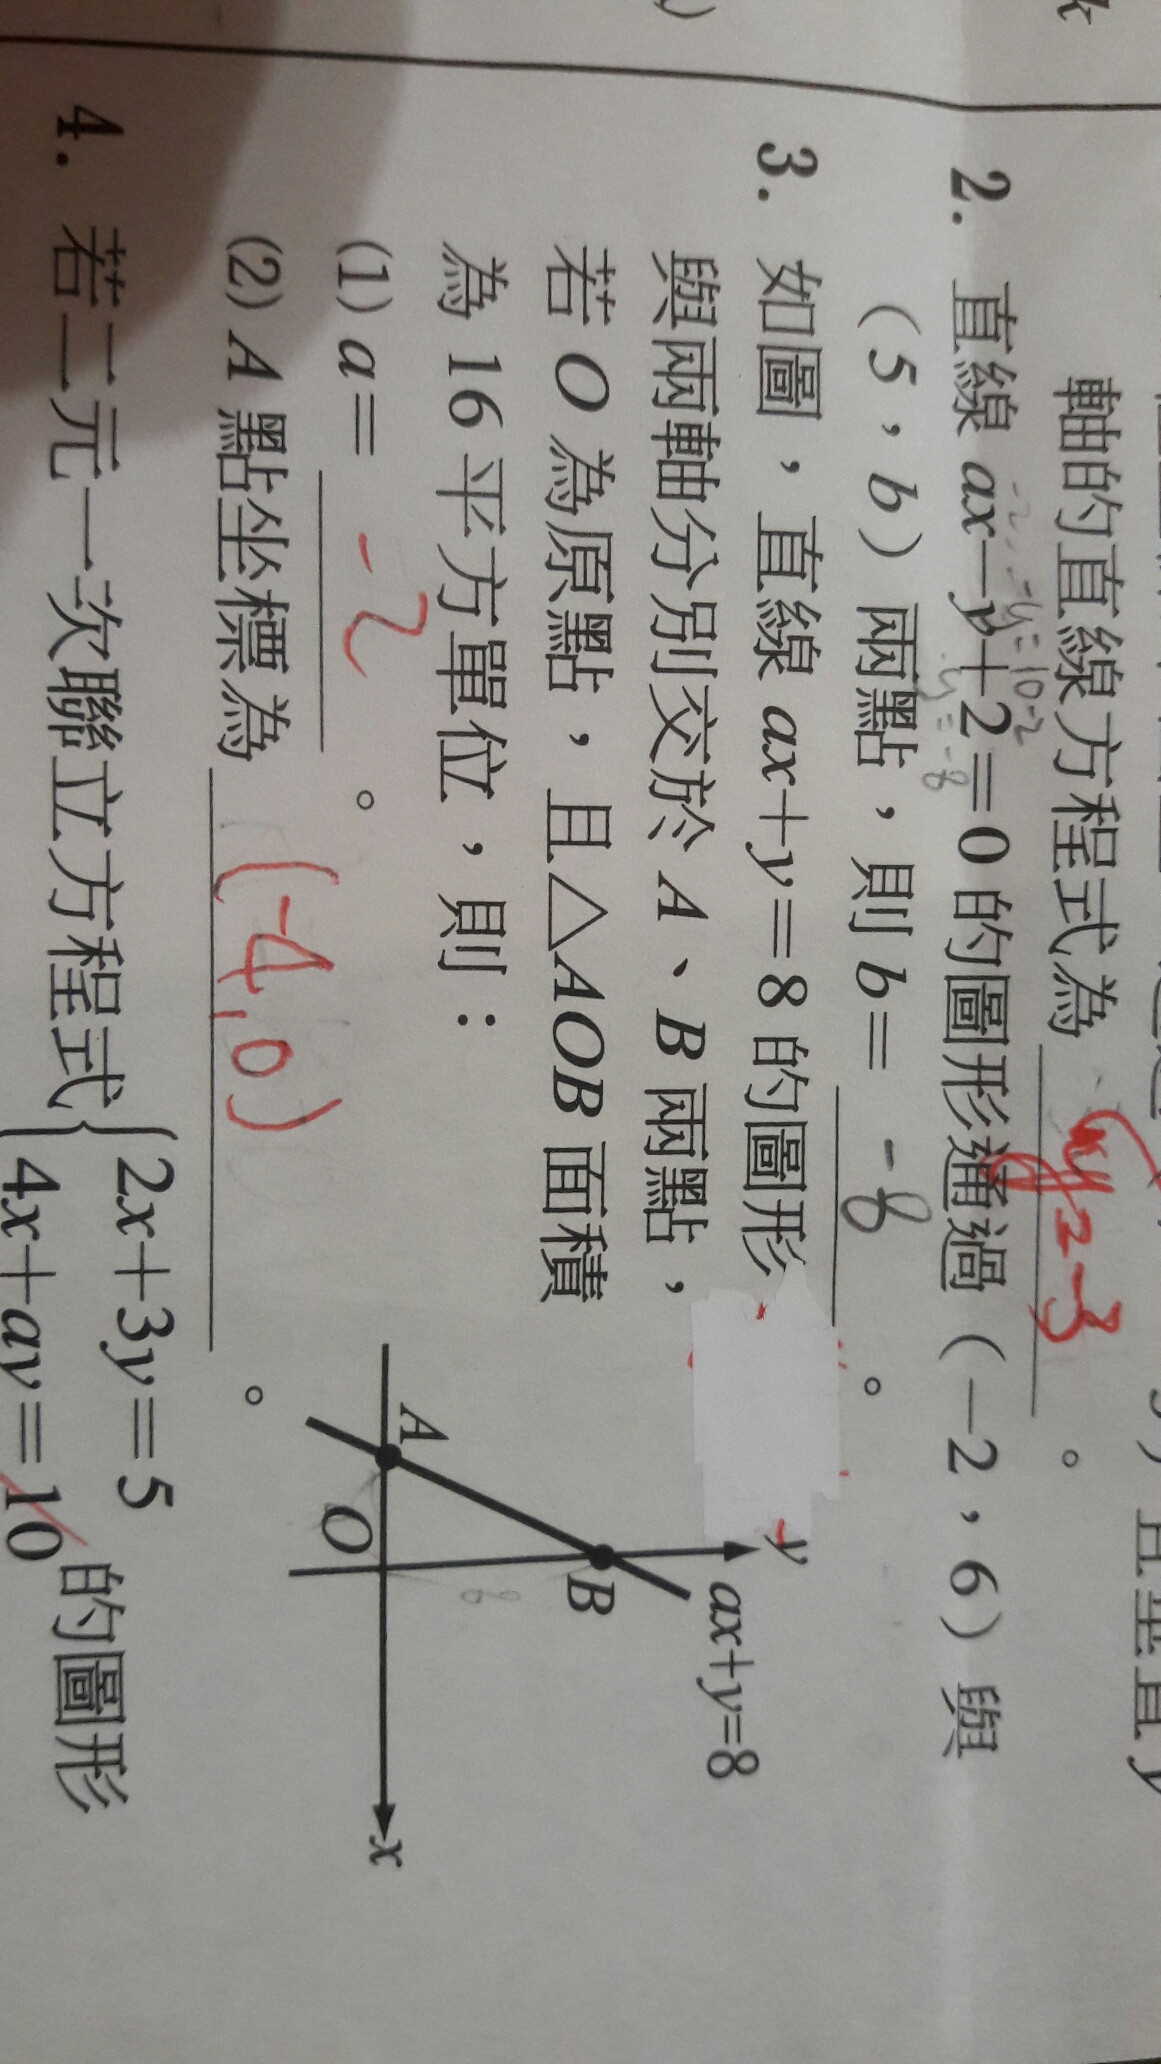 軸的直線方程式為 y=-3 。
2. 直線 ax-y+2=0 的圖形通過(-2,6)與
(5,b)兩點,則 b= -8 。
3. 如圖,直線 ax+y=8 的圖形
與兩軸分別交於 A、B 兩點,
若 O 為原點,且△AOB 面積
為 16 平方單位,則:
(1) a= -2 。
(2) A 點坐標為 (-4,0) 。
y
ax+y=8
B
8
A
O
x
4. 若二元一次聯立方程式{2x+3y=5
4x+ay=10 的圖形